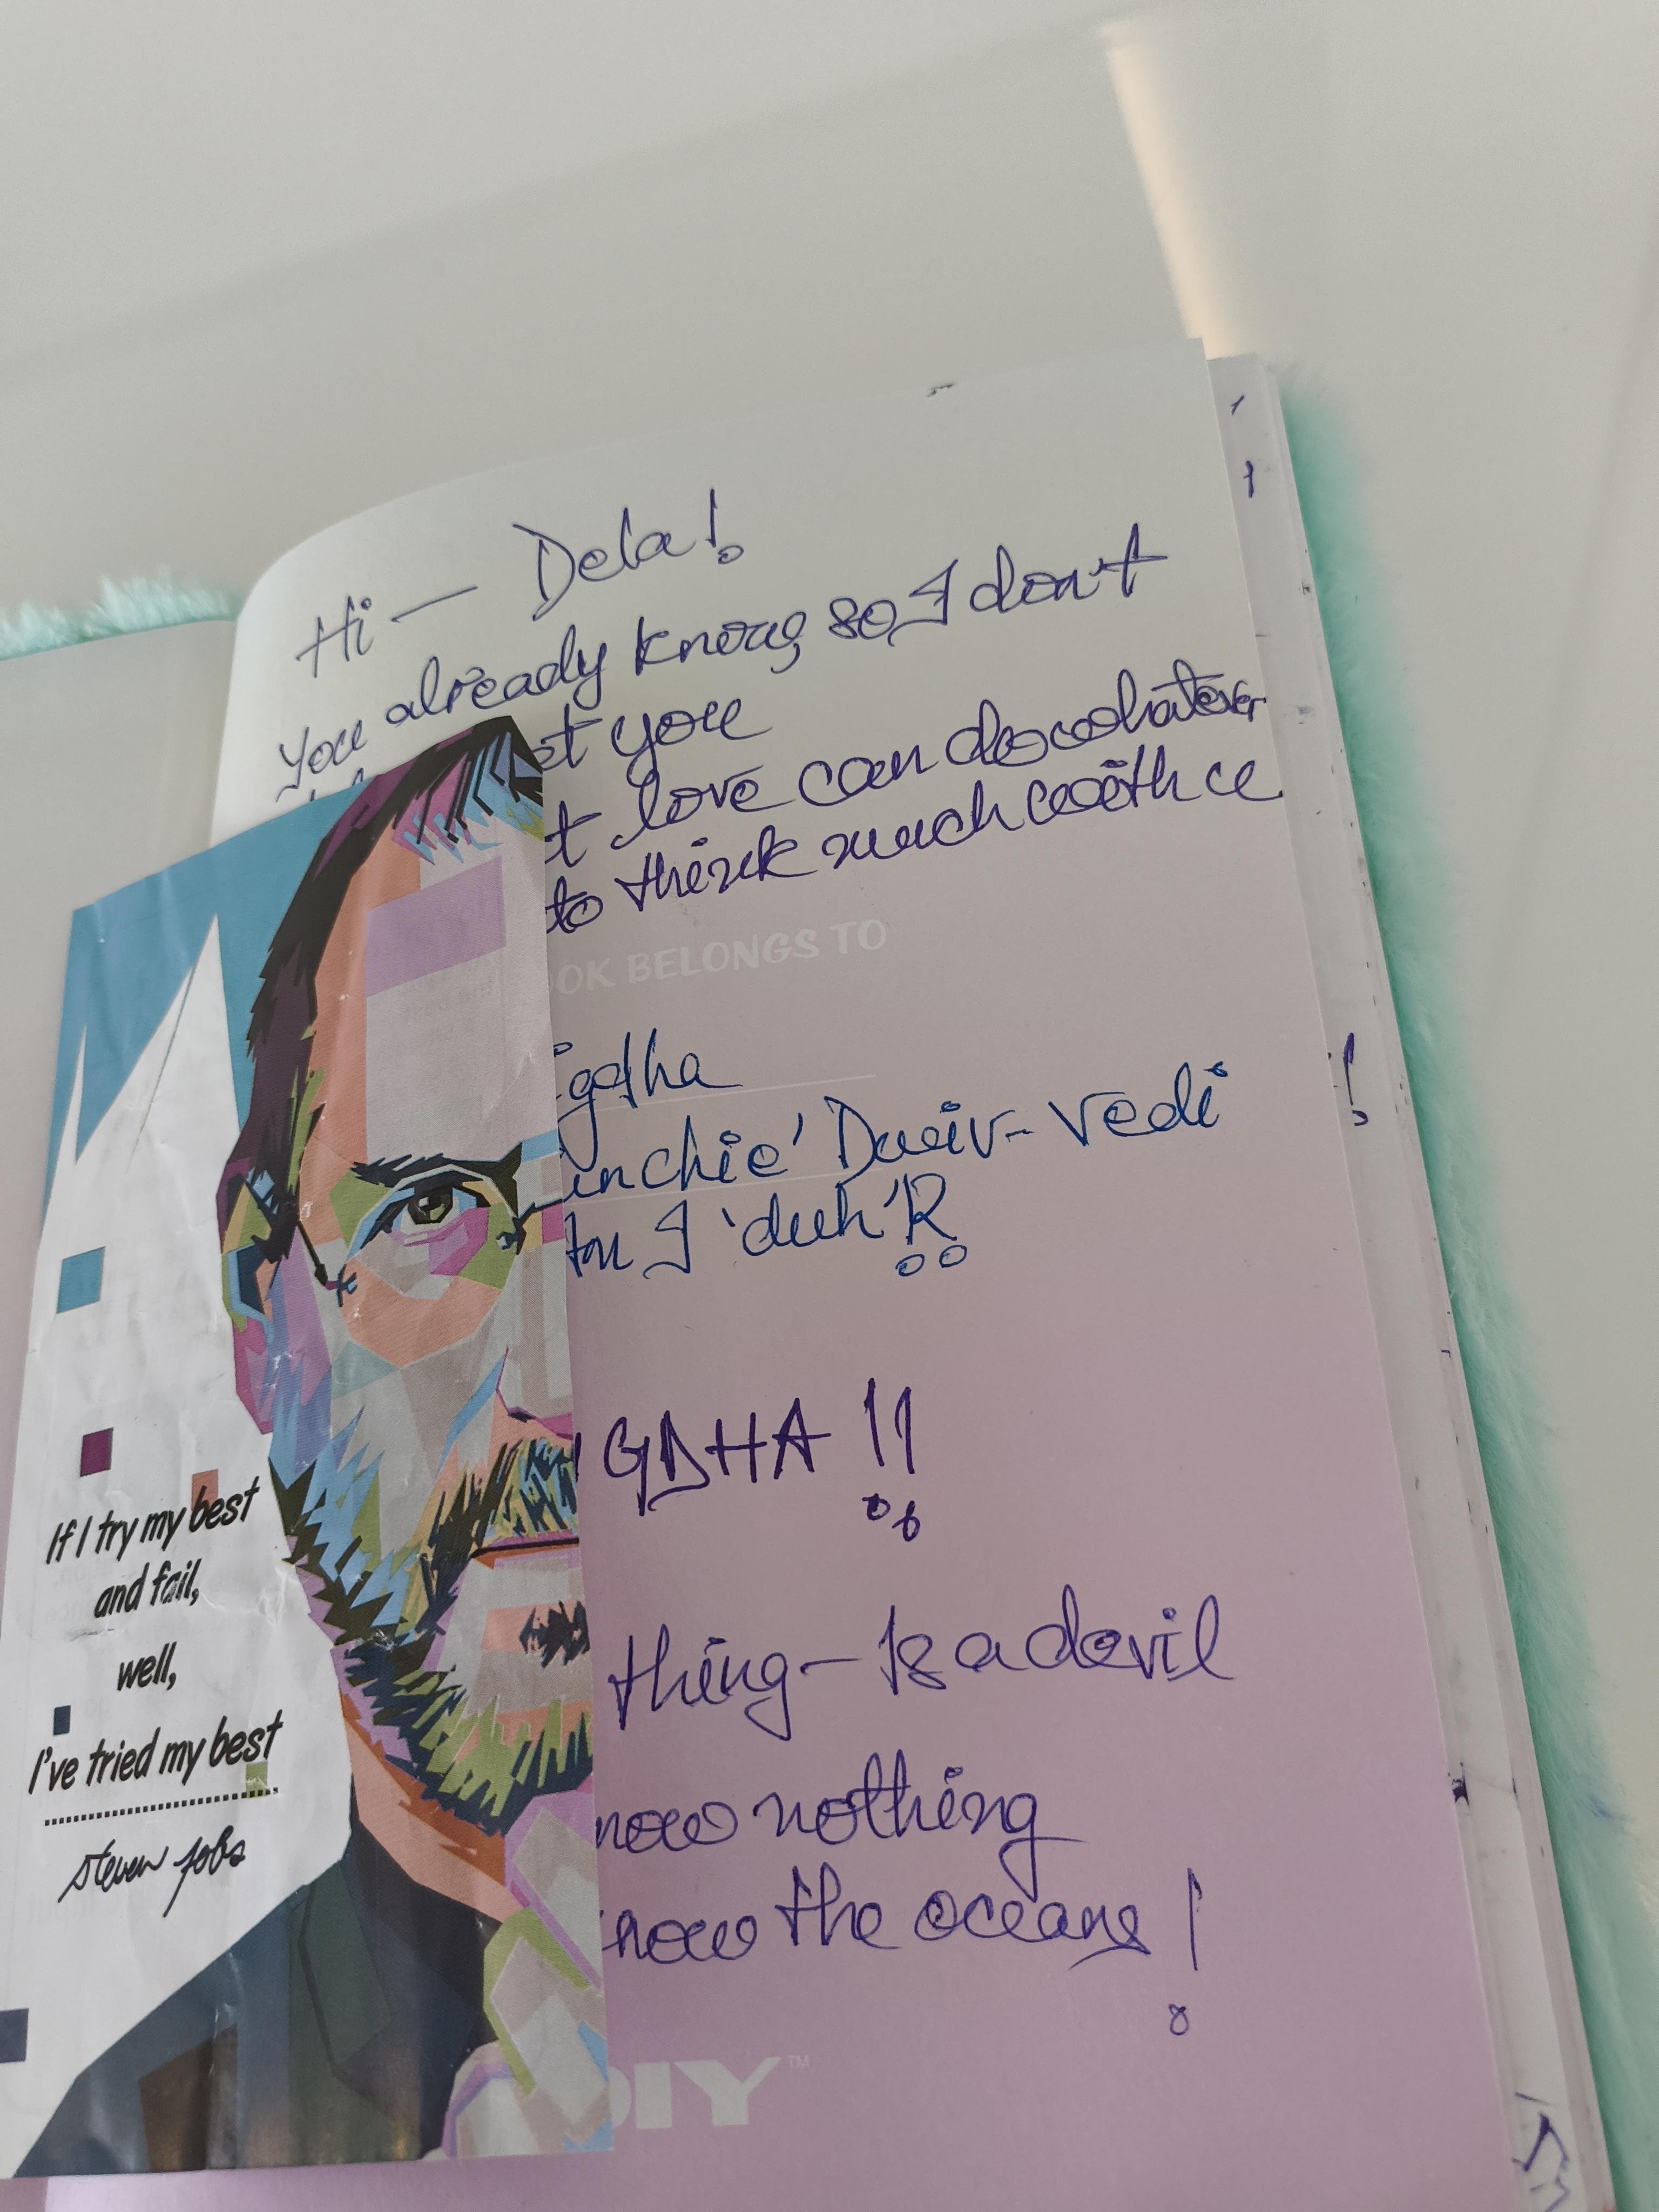 Hi — Dela!
You already know, so I don't
st you
t love can do whatever
to think much with u
OOK BELONGS TO
igdha
unchie' Dwiv-vedi
ton I 'duh'R
GDHA !!
thing - Is a devil
now nothing
now the oceans !
DIY™
If I try my best
and fail,
well,
I've tried my best
steven jobs